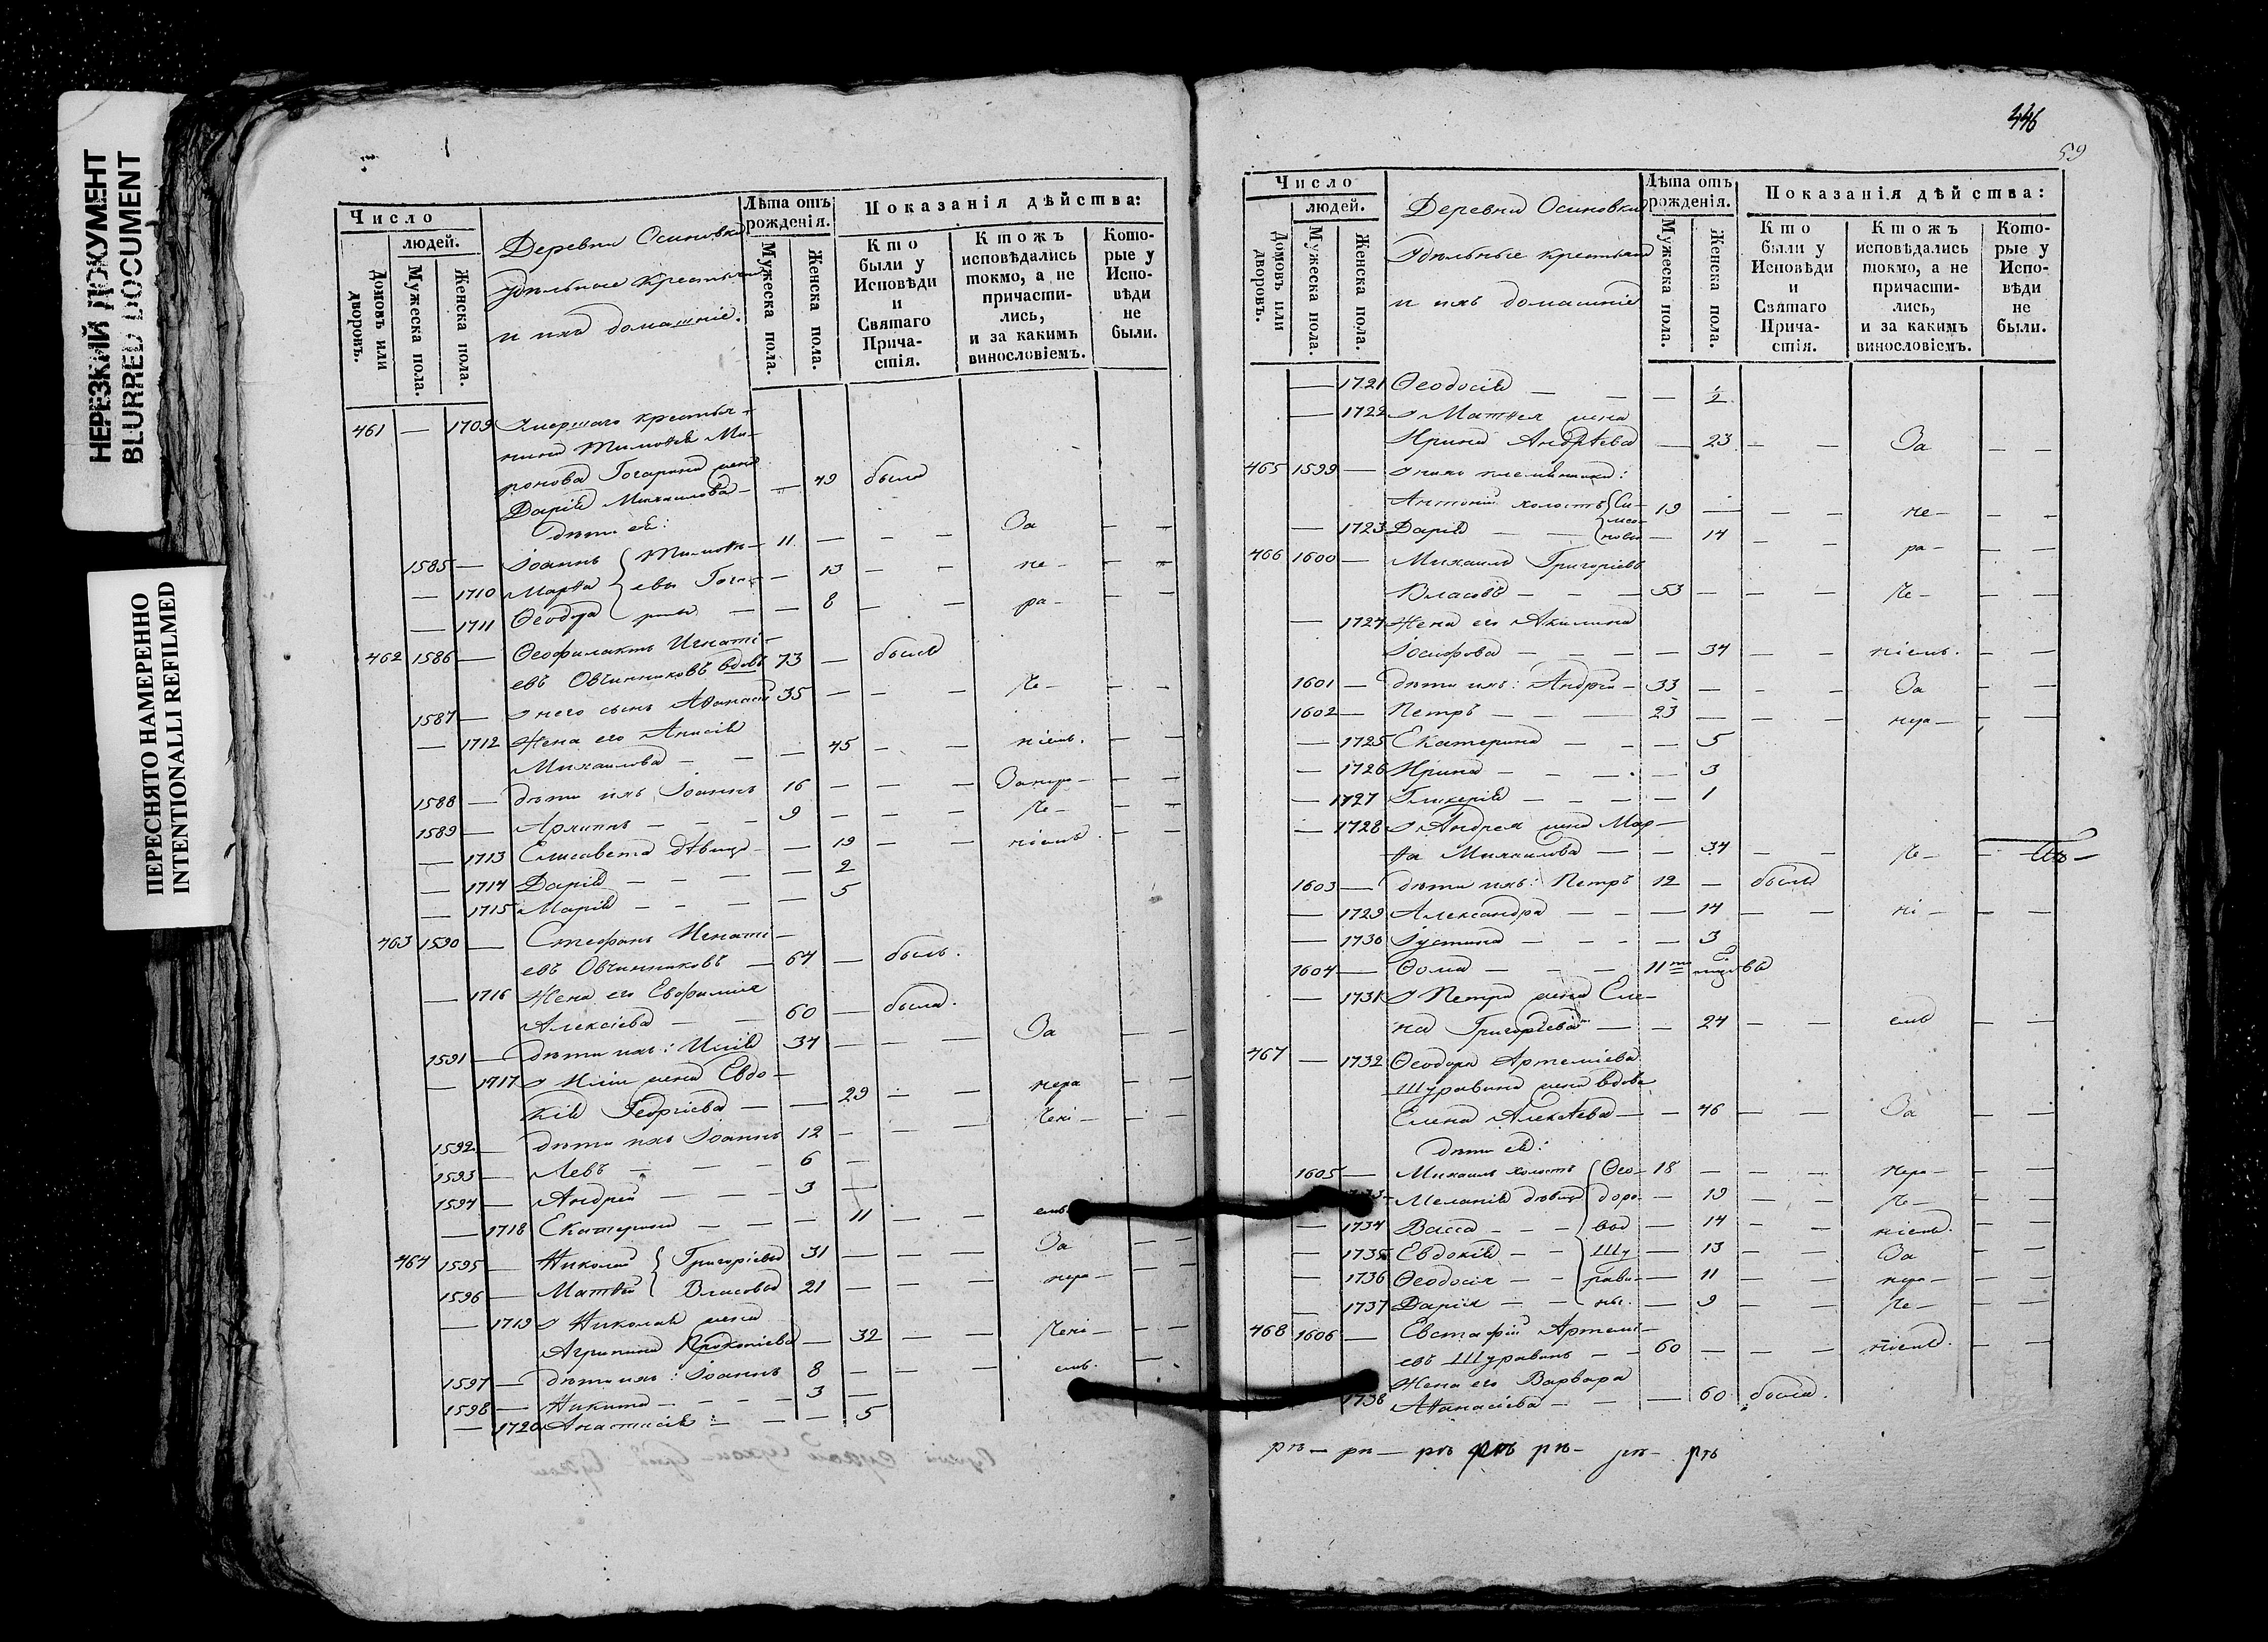 НЕРЕЗКИЙ ДОКУМЕНТ
BLURRED DOCUMENT
ПЕРЕСНЯТО НАМЕРЕННО
INTENTIONALLI REFILMED
Число
людей.
Домовъ или дворовъ.
Мужеска пола.
Женска пола.
Деревни Осиновки
удѣльные крестьяне
и ихъ домашніе.
Лѣта отъ рожденія.
Мужеска пола.
Женска пола.
Показанія дѣйства:
Кто были у Исповѣди и Святаго Причастія.
Ктожъ исповѣдались токмо, а не причастились, и за какимъ винословіемъ.
Которые у Исповѣди не были.
461 — 1709 Умершаго крестья-
нина Тимофея Ми-
ронова Гогарина жена
Дарія Михаилова — — 49 была
дѣти ея: За — —
1585 — Іоаннъ Тимофе- 11 — — —
— 1710 Марѳа евы Гога- — 13 — — не — — —
— 1711 Ѳеодора рины — — 8 — — ра — — —
462 1586 — Ѳеофилактъ Игнаті-
евъ Овчинниковъ вдовъ 73 — былъ
1587 — у него сынъ Аѳанасій 35 — — — че — — —
— 1712 Жена его Анисія
Михаилова — — — 45 — — ніемъ. — —
1588 — дѣти ихъ Іоаннъ 16 — — — Занера — — —
1589 — Архипъ — — — 9 — — — че — — —
— 1713 Елисавета дѣвица — — 19 — — ніемъ — —
— 1714 Дарія — — — — 2
— 1715 Марія — — — — 5
463 1590 — Стефанъ Игнаті-
евъ Овчинниковъ — 64 — былъ.
— 1716 Жена его Евфимія
Алексіева — — 60 — была.
1591 — дѣти ихъ: Илія 34 — — — За — —
— 1717 у Иліи жена Евдо-
кія Георгіева — — 29 — — нера — —
1592 — дѣти ихъ Іоаннъ 12 — — — чені — — —
1593 — Левъ — — — 6 —
1594 — Андрей — — — 3 —
— 1718 Екатерина — — — — 11 — — емъ
464 1595 — Николай Григорьевы 31 — — — За — —
1596 — Матѳей Власовы 21 — — — нера — — —
— 1719 у Николая жена
Агрипина Прокопіева — 32 — — чені — — —
1597 — дѣти ихъ: Іоаннъ 8 — — — емъ. —
1598 — Никита — — — 3 —
— 1720 Анастасія — — — 5
446
59
Число
людей.
Домовъ или дворовъ.
Мужеска пола.
Женска пола.
Деревни Осиновки
Удѣльные крестьяне
и ихъ домашніе
Лѣта отъ рожденія.
Мужеска пола.
Женска пола.
Показанія дѣйства:
Кто были у Исповѣди и Святаго Причастія.
Ктожъ исповѣдались токмо, а не причастились, и за какимъ винословіемъ.
Которые у Исповѣди не были.
— 1721 Ѳеодосія — — — ½
— 1722 у Матѳея жена
Ирина Андрѣева — 23 — — За — —
465 1599 — у нихъ племянники:
Антоній холостъ Си- 19 — не — — —
— 1723 Дарія — — мео- новы — 14 — —
466 1600 — Михаилъ Григоріевъ ра — — —
Власовъ — — — 53 — — — че — — —
— 1724 Жена его Акилина
Іосифова — — — — 34 — — ніемъ. — —
1601 — дѣти ихъ: Андрей — 33 — — — За — —
1602 — Петръ — — — 23 — — — нера — — —
— 1725 Екатерина — — — 5
— 1726 Ирина — — — — 3
— 1727 Гликерія — — — — 1
— 1728 у Андрея жена Мар-
ѳа Михаилова — — 34 — — че — —
1603 — дѣти ихъ: Петръ 12 — былъ
— 1729 Александра — — — 14 — — ні — — —
— 1730 Іустина — — — — 3
1604 — Ѳома — — — 11
— 1731 у Петра жена Еле-
на Григорьева — — 24 — — емъ — —
467 — 1732 Ѳеодора Артеміева
Шуравина жена вдова
Елена Алексѣева — — 46 — — За — —
дѣти ея:
1605 — Михаилъ холостъ Ѳео- 18 — — — нера — — —
Меланія дѣвица доро- — 19 — — че — — —
— 1734 Васса — — вы — 14 — — ніемъ. — —
— 1735 Евдокія — — Шу — 13 — — За — —
— 1736 Ѳеодосія — — рави- — 11 — — нера — — —
— 1737 Дарія — — ны. — 9 — — че — — —
468 1606 — Евстафій Артемі-
евъ Шуравинъ — — 60 — — — ніемъ. — —
Жена его Варвара
1738 Аѳанасіева — — — 60 была.